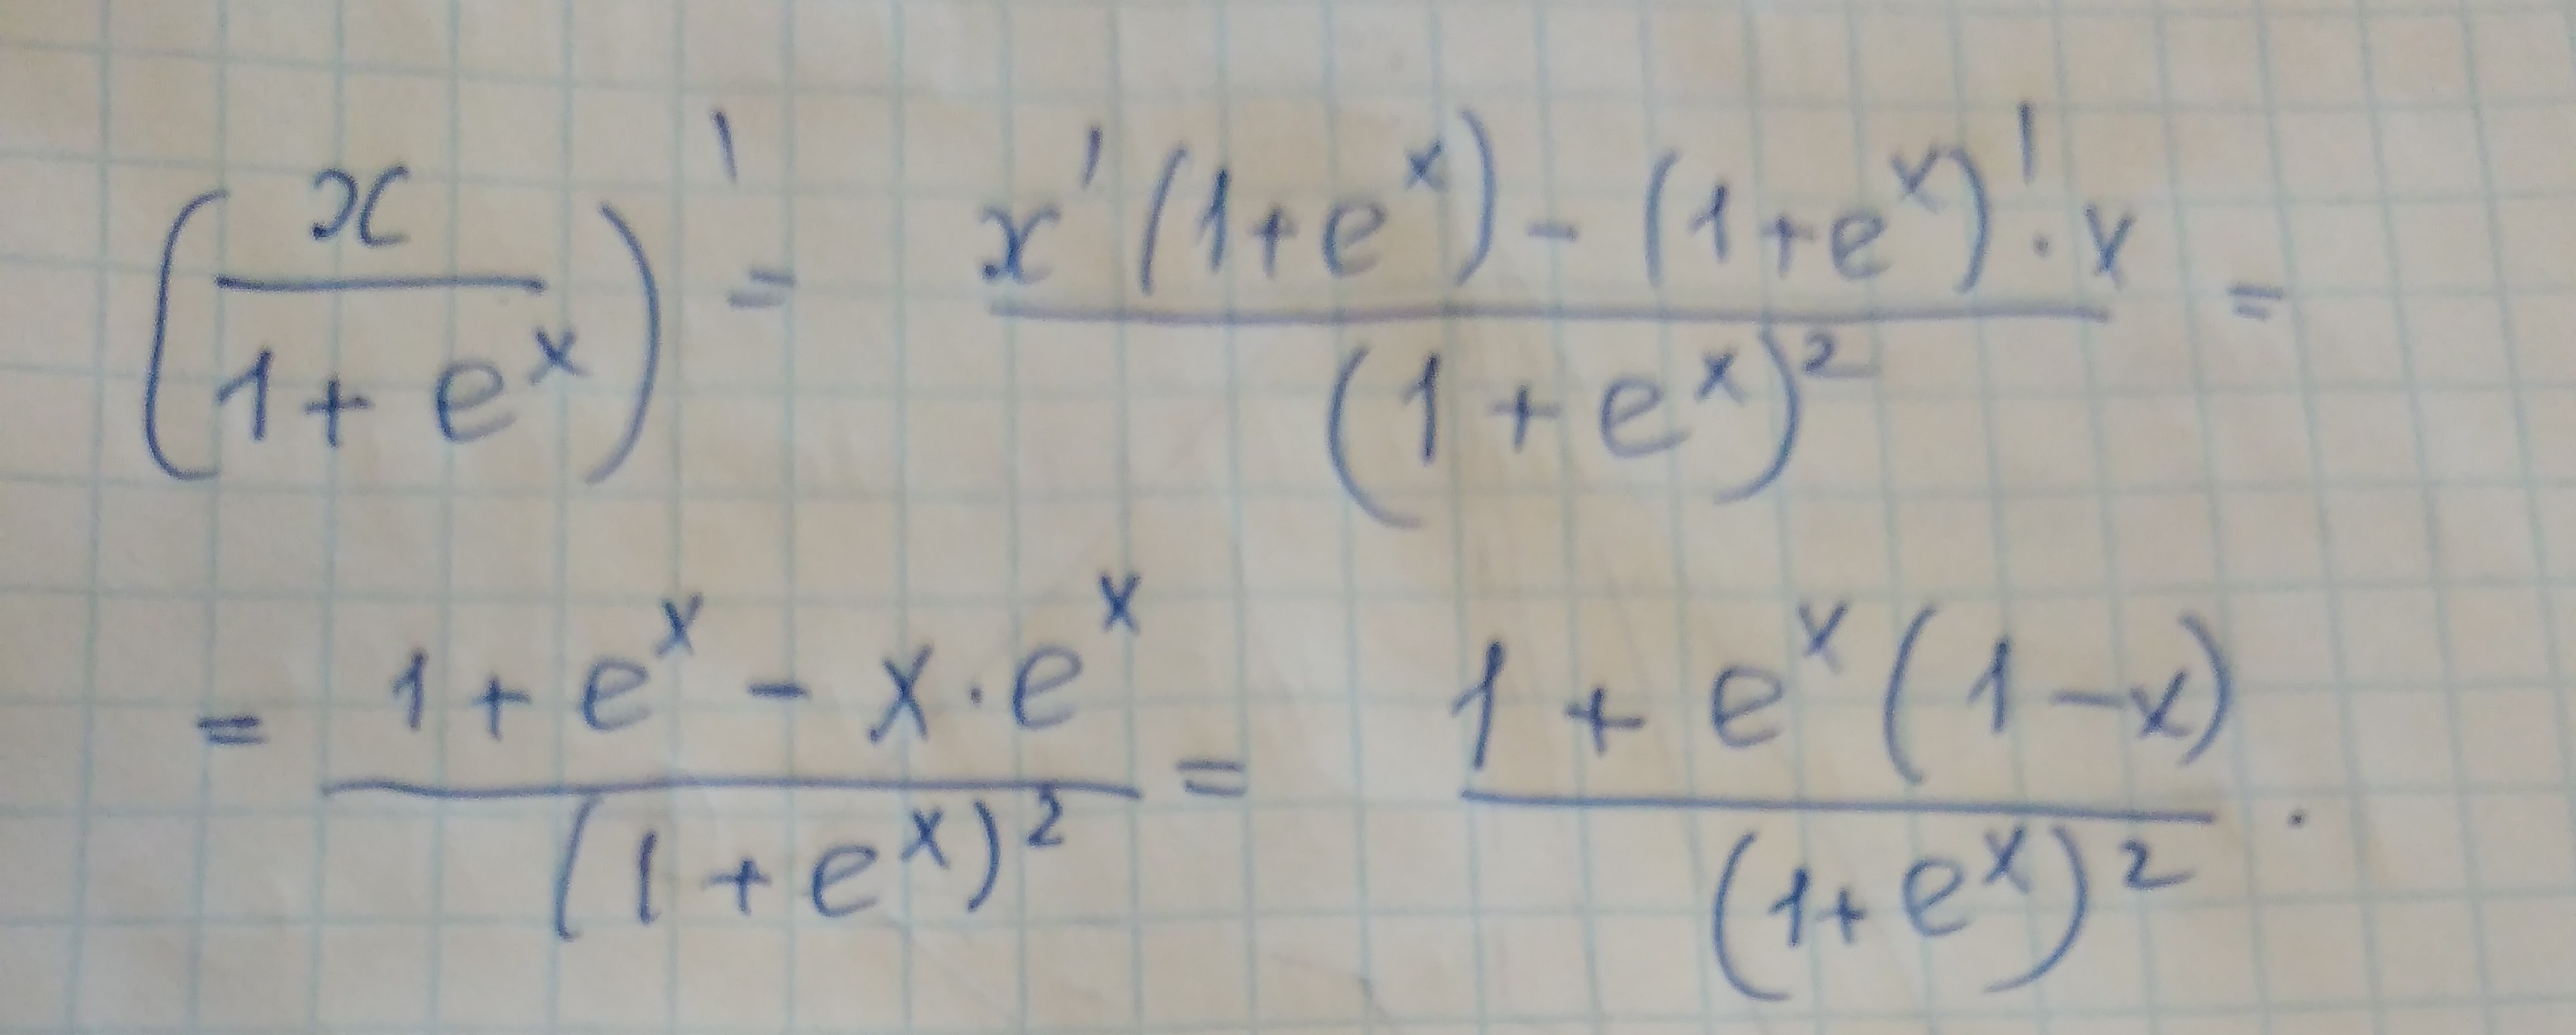 (x/(1+e^x))' = (x'(1+e^x) - (1+e^x)'·x)/(1+e^x)^2 =
= (1+e^x - x·e^x)/(1+e^x)^2 = (1+e^x(1-x))/(1+e^x)^2.